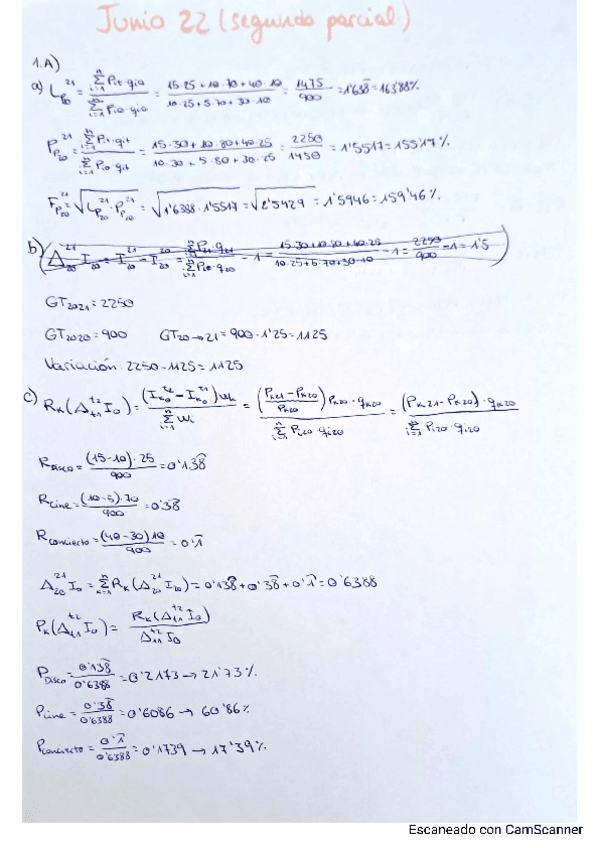 Junio 22 (segundo parcial)
1.A)
a) Lp20^21 = Σ Pit·qi0 / Σ Pi0·qi0 = 15·25+10·70+40·10 / 10·25+5·70+30·10 = 1475/900 = 1'638 = 163'88%
Pp20^21 = Σ Pit·qit / Σ Pi0·qit = 15·30+10·80+40·25 / 10·30+5·80+30·25 = 2250/1450 = 1'5517 = 155'17%
Fp20^21 = √Lp20^21·Pp20^21 = √1'6388·1'5517 = √2'5429 = 1'5946 = 159'46%
b)
GT2021 = 2250
GT2020 = 900 GT20→21 = 900·1'25 = 1125
Variación: 2250-1125 = 1125
c) Rk(Δt1^t2 I0) = (Ik0^t2 - Ik0^t1)wk / Σ wi = ((Pk21-Pk20)/Pk20) Pk20·qk20 / Σ Pi20·qi20 = (Pk21-Pk20)·qk20 / Σ Pi20·qi20
RDisco = (15-10)·25/900 = 0'138
RCine = (10-5)·70/900 = 0'38
RConcierto = (40-30)10/900 = 0'1
Δ20^21 I0 = Σ Rk(Δ20^21 I20) = 0'138+0'38+0'1 = 0'6388
Pk(Δt1^t2 I0) = Rk(Δt1^t2 I0) / Δt1^t2 I0
PDisco = 0'138/0'6388 = 0'2173 → 21'73%
PCine = 0'38/0'6388 = 0'6086 → 60'86%
PConcierto = 0'1/0'6388 = 0'1739 → 17'39%
Escaneado con CamScanner